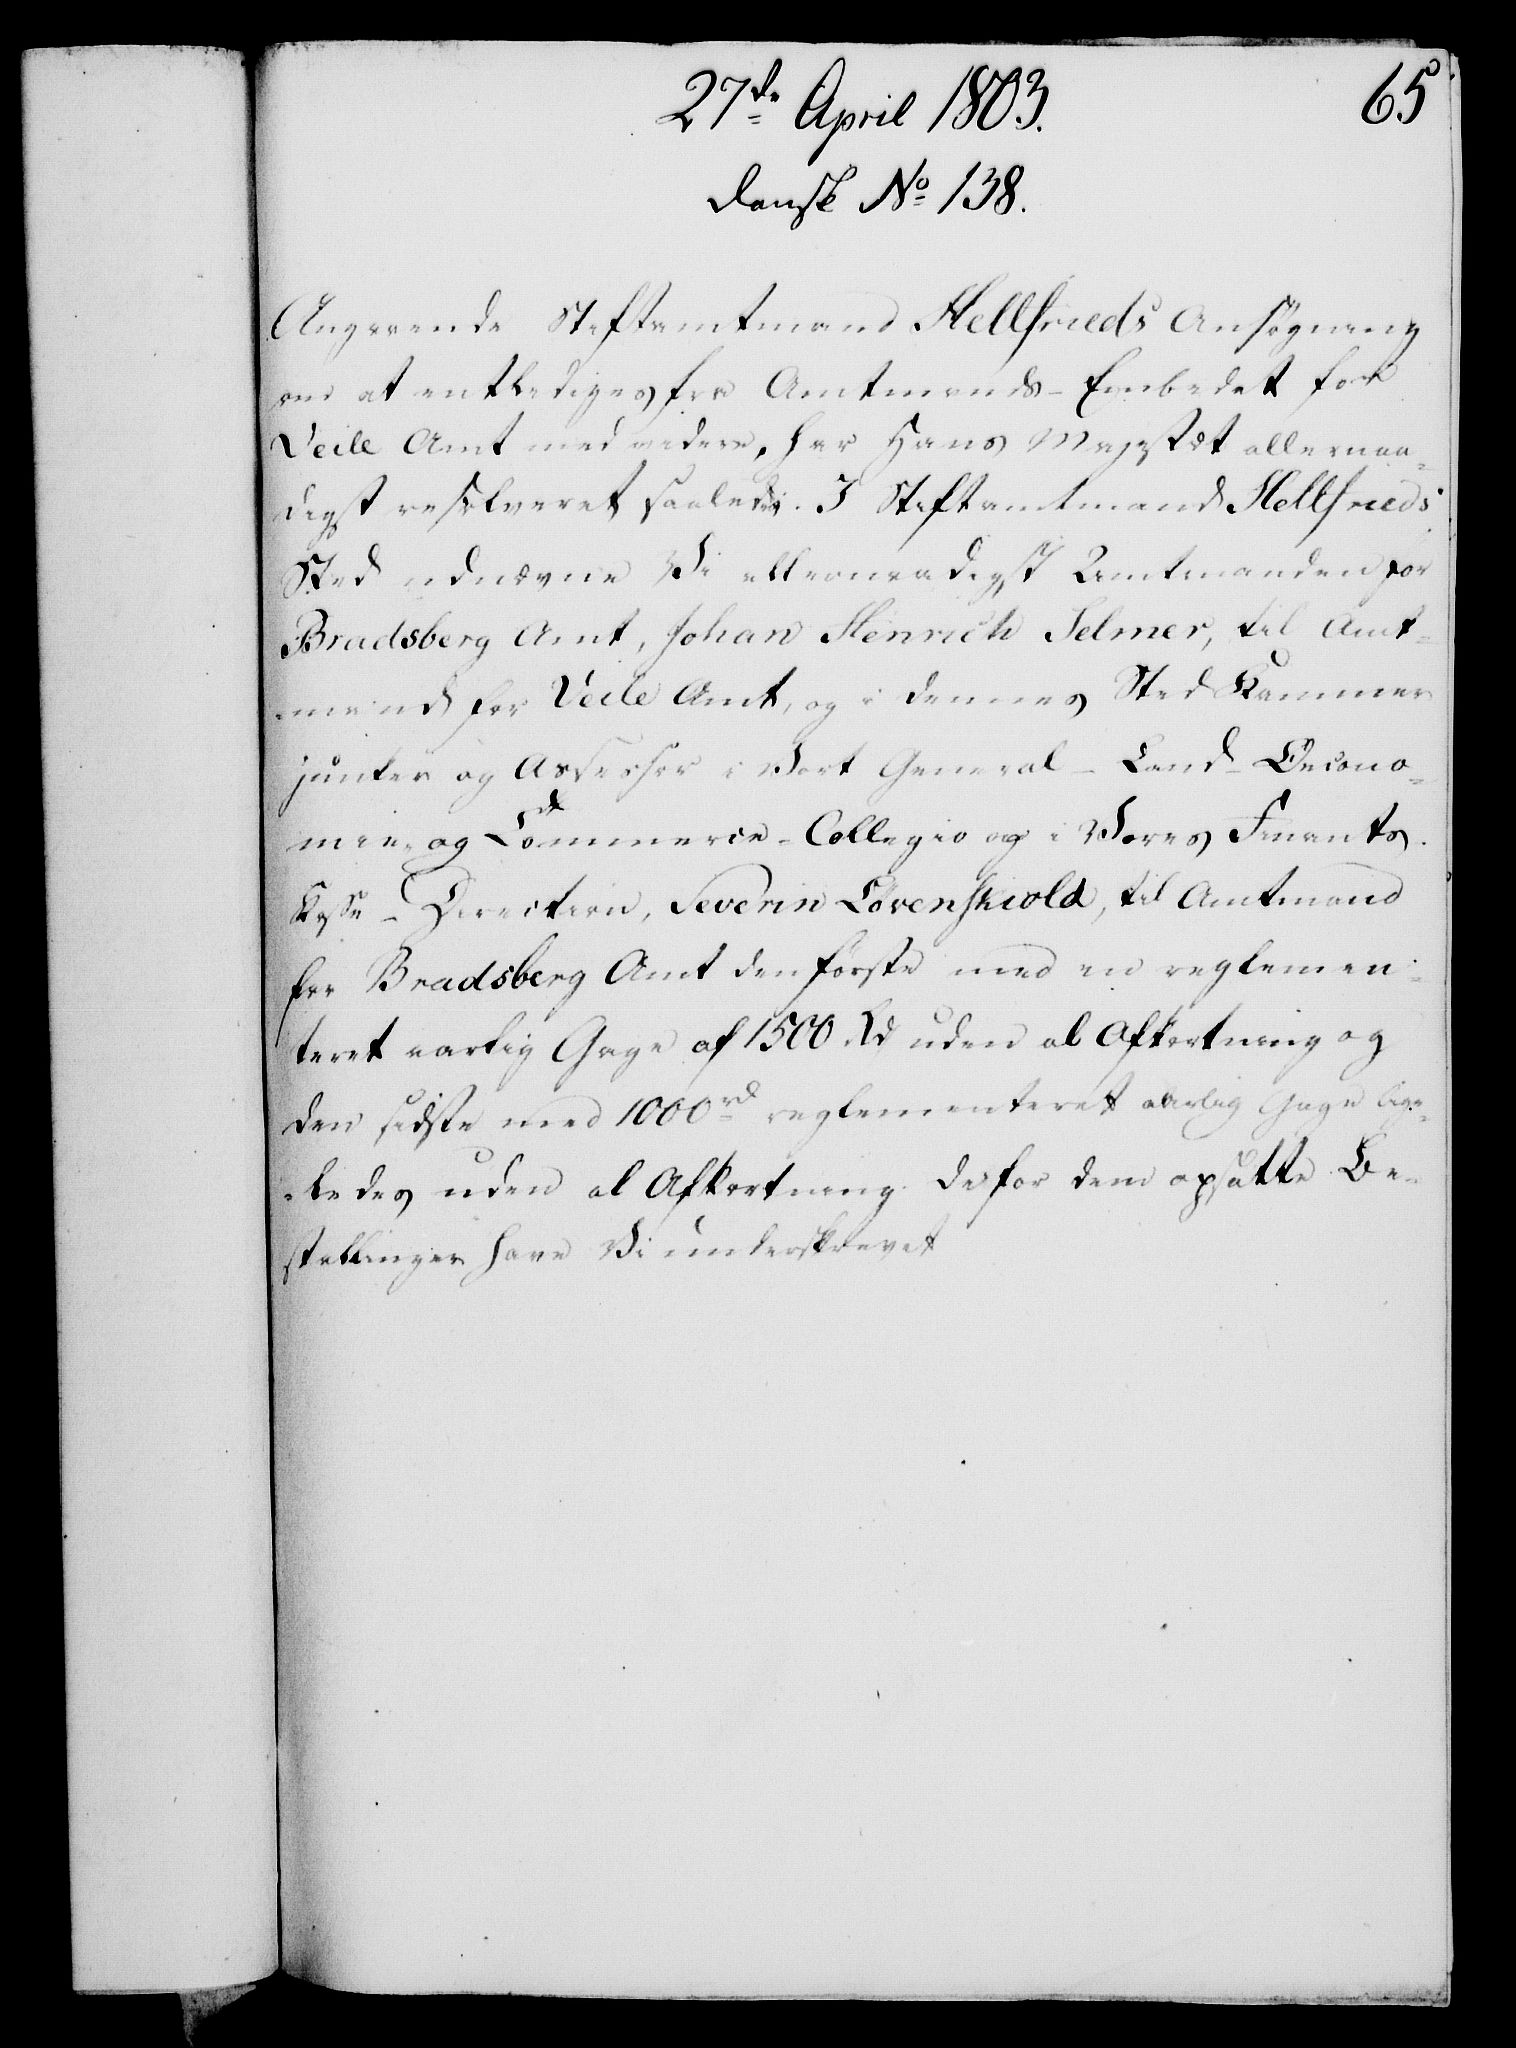 27de April 1803.
65
Dansk No 138.
Angaaende Stiftamtmand Hellfrieds Ansøgning
om at entlediges fra Amtmands-Embedet for
Veile Amt med videre, har Hans Majestæt allernaa-
digst resolveret saaledes: I Stiftamtmand Hellfrieds
Sted udnævne Vi allernaadigst Amtmanden for
Bradsberg Amt, Johan Henrich Selmer, til Amt-
mand for Veile Amt, og i dennes Sted Kammer
junker og Assessor i Vort General-Land-Oecono-
mie- og Commerce-Collegio og i Vores Finants-
Kasse-Direction, Severin Lövenskiold, til Amtmand
for Bradsberg Amt den første med en reglemen-
teret aarlig Gage af 1500 Rd uden al Afkortning og
den sidste med 1000 rd reglementeret aarlig Gage lige-
ledes uden al Afkortning. De for dem opsatte Be-
stallinger have Vi underskrevet